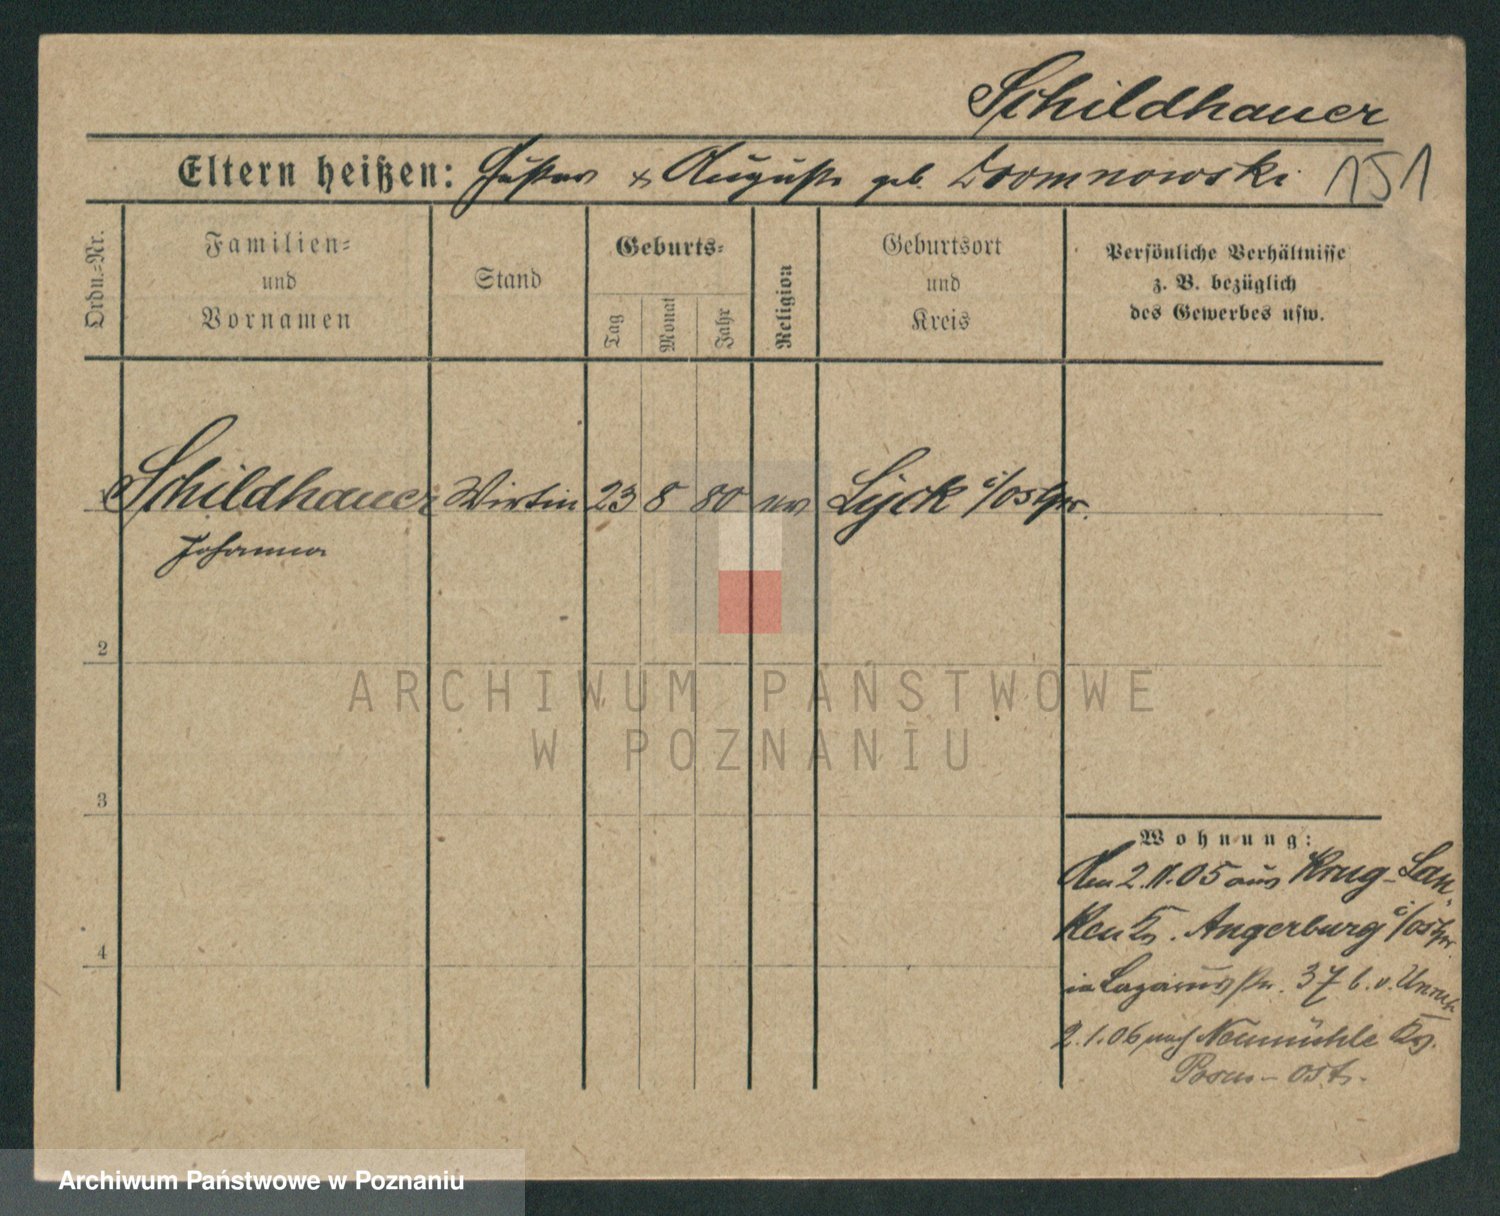 Schildhauer
Eltern heißen: Gustav & Auguste geb. Dromnowski 151
Ordn.-Nr.
Familien-
und
Vornamen
Stand
Geburts-
Tag
Monat
Jahr
Religion
Geburtsort
und
Kreis
Persönliche Verhältnisse
z. B. bezüglich
des Gewerbes usw.
Schildhauer Wirtin 23 8 80 ev Lyck i/Ostpr.
Johanna
2
ARCHIWUM PAŃSTWOWE
W POZNANIU
3
Wohnung:
Den 2.11.05 aus Krug-Lan-
ken Kr. Angerburg i/Ostpr
in Lazarusstr. 37 b. v. Unruh
2.1.06 nach Neumühle Kr.
Posen-Ost.
4
Archiwum Państwowe w Poznaniu